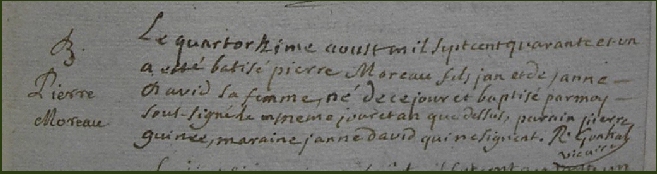 B
Pierre
Moreau
Le quatorzime aoust mil sept cent quarante et un
a esté batisé pierre Moreau fils jan et de janne
david sa femme, né de ce jour et baptisé par moy
sous-signé le mesme jour et an que dessus, parrain pierre
guinée, maraine janne david qui ne signent. R.
vicaire